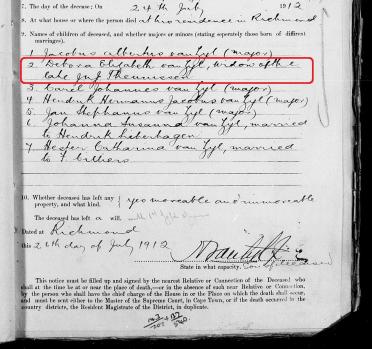 7. The day of the decease: On 24th July 1912
8. At what house or where the person died at his residence in Richmond
9. Names of children of deceased, and whether majors or minors (stating seperately those born of different
marriages).
1 Jacobus Albertus van Zyl (major)
2 Debora Elizabeth van Zyl, widow of the
late Theunissen
3 Carel Johannes van Zyl (major)
4 Hendrik Hermanus Jacobus van Zyl (major)
5 Jan Stephanus van Zyl (major)
6 Johanna Susanna van Zyl, married
to Hendrik Liebenhagen
7 Hester Catharina van Zyl, married
to Cilliers
10. Whether deceased has left any property, and what kind. } yes moveable and immoveable
The deceased has left a will.
Dated at Richmond
this 26th day of July 1912
State in what capacity.
This notice must be filled up and signed by the nearest Relative or Connection of the Deceased who
shall at the time be at or near the place of death, or in the absence of such near Relative or Connection,
by the person who shall have the chief charge of the House in or the Place on which the death shall occur,
and must be sent either to the Master of the Supreme Court, in Cape Town, or if the death occurred in the
country districts, the Resident Magistrate of the District, in duplicate.